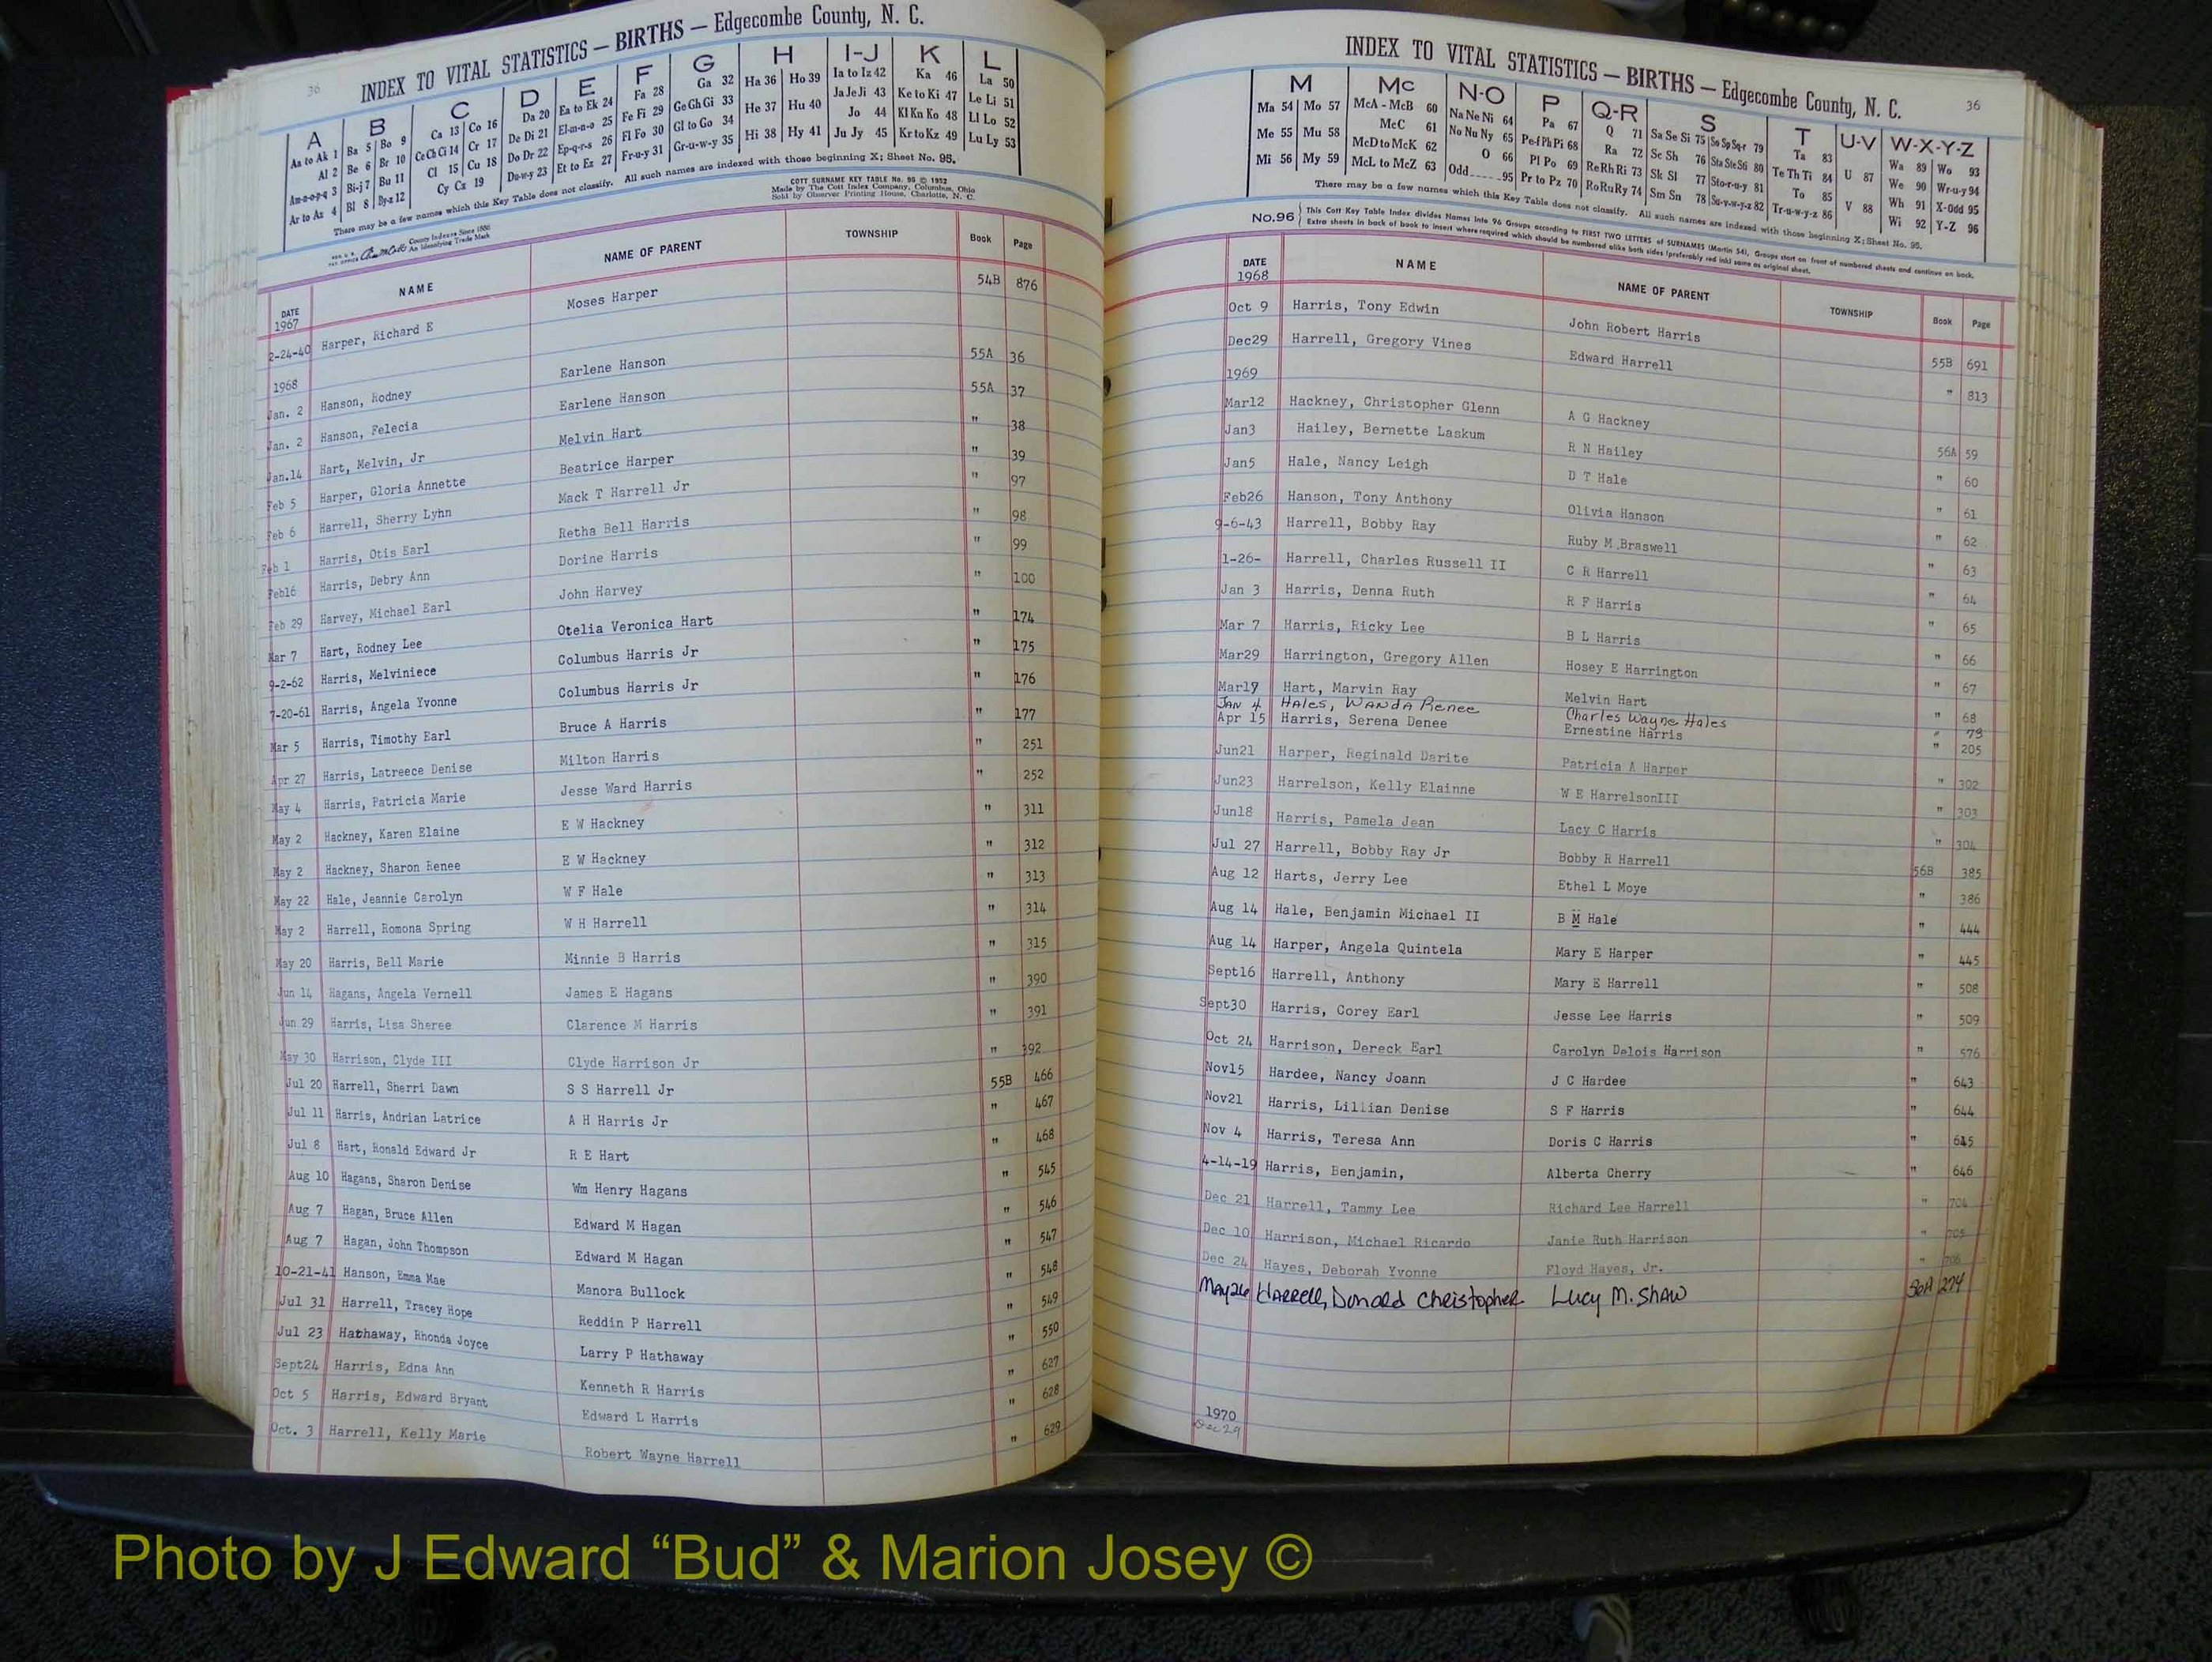 36
INDEX TO VITAL STATISTICS — BIRTHS — Edgecombe County, N. C.
A B C D E F G H I-J K L
Aa to Ak 1 Ba 5 Bo 9 Ca 13 Co 16 Da 20 Ea to Ek 24 Fa 28 Ga 32 Ha 36 Ho 39 Ia to Iz 42 Ka 46 La 50
Al 2 Be 6 Br 10 Ce Ch Ci 14 Cr 17 De Di 21 El-m-n-o 25 Fe Fi 29 Ge Gh Gi 33 He 37 Hu 40 Ja Je Ji 43 Ke to Ki 47 Le Li 51
Am-n-o-p-q 3 Bi-j 7 Bu 11 Cl 15 Cu 18 Do Dr 22 Ep-q-r-s 26 Fl Fo 30 Gl to Go 34 Hi 38 Hy 41 Jo 44 Kl Kn Ko 48 Ll Lo 52
Ar to Az 4 Bl 8 By-z 12 Cy Cz 19 Du-w-y 23 Et to Ez 27 Fr-u-y 31 Gr-u-w-y 35 Ju Jy 45 Kr to Kz 49 Lu Ly 53
There may be a few names which this Key Table does not classify. All such names are indexed with those beginning X; Sheet No. 95.
COTT SURNAME KEY TABLE No. 96 © 1952
Made by The Cott Index Company, Columbus, Ohio
Sold by Observer Printing House, Charlotte, N. C.
County Indexes Since 1888
An Identifying Trade Mark
DATE NAME NAME OF PARENT TOWNSHIP Book Page
1967
2-24-40 Harper, Richard E Moses Harper 54B 876
1968
Jan. 2 Hanson, Rodney Earlene Hanson 55A 36
Jan. 2 Hanson, Felecia Earlene Hanson 55A 37
Jan.14 Hart, Melvin, Jr Melvin Hart " 38
Feb 5 Harper, Gloria Annette Beatrice Harper " 39
Feb 6 Harrell, Sherry Lyhn Mack T Harrell Jr " 97
Feb 1 Harris, Otis Earl Retha Bell Harris " 98
Feb16 Harris, Debry Ann Dorine Harris " 99
Feb 29 Harvey, Michael Earl John Harvey " 100
Mar 7 Hart, Rodney Lee Otelia Veronica Hart " 174
9-2-62 Harris, Melviniece Columbus Harris Jr " 175
7-20-61 Harris, Angela Yvonne Columbus Harris Jr " 176
Mar 5 Harris, Timothy Earl Bruce A Harris " 177
Apr 27 Harris, Latreece Denise Milton Harris " 251
May 4 Harris, Patricia Marie Jesse Ward Harris " 252
May 2 Hackney, Karen Elaine E W Hackney " 311
May 2 Hackney, Sharon Renee E W Hackney " 312
May 22 Hale, Jeannie Carolyn W F Hale " 313
May 2 Harrell, Romona Spring W H Harrell " 314
May 20 Harris, Bell Marie Minnie B Harris " 315
Jun 14 Hagans, Angela Vernell James E Hagans " 390
Jun 29 Harris, Lisa Sheree Clarence M Harris " 391
May 30 Harrison, Clyde III Clyde Harrison Jr " 392
Jul 20 Harrell, Sherri Dawn S S Harrell Jr 55B 466
Jul 11 Harris, Andrian Latrice A H Harris Jr " 467
Jul 8 Hart, Ronald Edward Jr R E Hart " 468
Aug 10 Hagans, Sharon Denise Wm Henry Hagans " 545
Aug 7 Hagan, Bruce Allen Edward M Hagan " 546
Aug 7 Hagan, John Thompson Edward M Hagan " 547
10-21-41 Hanson, Emma Mae Manora Bullock " 548
Jul 31 Harrell, Tracey Hope Reddin P Harrell " 549
Jul 23 Hathaway, Rhonda Joyce Larry P Hathaway " 550
Sept24 Harris, Edna Ann Kenneth R Harris " 627
Oct 5 Harris, Edward Bryant Edward L Harris " 628
Oct. 3 Harrell, Kelly Marie Robert Wayne Harrell " 629
INDEX TO VITAL STATISTICS — BIRTHS — Edgecombe County, N. C.
36
M Mc N-O P Q-R S T U-V W-X-Y-Z
Ma 54 Mo 57 McA - McB 60 Na Ne Ni 64 Pa 67 Q 71 Sa Se Si 75 So Sp Sq-r 79 Ta 83 U 87 Wa 89 Wo 93
Me 55 Mu 58 McC 61 No Nu Ny 65 Pe-f Ph Pi 68 Ra 72 Sc Sh 76 Sta Ste Sti 80 Te Th Ti 84 V 88 We 90 Wr-u-y 94
Mi 56 My 59 McD to McK 62 O 66 Pl Po 69 Re Rh Ri 73 Sk Sl 77 Sto-r-u-y 81 To 85 Wh 91 X-Odd 95
McL to McZ 63 Odd 95 Pr to Pz 70 Ro Ru Ry 74 Sm Sn 78 Su-v-w-y-z 82 Tr-u-w-y-z 86 Wi 92 Y-Z 96
There may be a few names which this Key Table does not classify. All such names are indexed with those beginning X; Sheet No. 95.
No.96 This Cott Key Table Index divides Names into 96 Groups according to FIRST TWO LETTERS of SURNAMES (Martin 54). Groups start on front of numbered sheets and continue on back.
Extra sheets in back of book to insert where required which should be numbered alike both sides (preferably red ink) same as original sheet.
DATE NAME NAME OF PARENT TOWNSHIP Book Page
1968
Oct 9 Harris, Tony Edwin John Robert Harris 55B 691
Dec29 Harrell, Gregory Vines Edward Harrell " 813
1969
Mar12 Hackney, Christopher Glenn A G Hackney 56A 59
Jan3 Hailey, Bernette Laskum R N Hailey " 60
Jan5 Hale, Nancy Leigh D T Hale " 61
Feb26 Hanson, Tony Anthony Olivia Hanson " 62
9-6-43 Harrell, Bobby Ray Ruby M Braswell " 63
1-26- Harrell, Charles Russell II C R Harrell " 64
Jan 3 Harris, Denna Ruth R F Harris " 65
Mar 7 Harris, Ricky Lee B L Harris " 66
Mar29 Harrington, Gregory Allen Hosey E Harrington " 67
Mar19 Hart, Marvin Ray Melvin Hart " 68
Jan 4 Hales, Wanda Renee Charles Wayne Hales " 79
Apr 15 Harris, Serena Denee Ernestine Harris " 205
Jun21 Harper, Reginald Darite Patricia A Harper " 302
Jun23 Harrelson, Kelly Elainne W E HarrelsonIII " 303
Jun18 Harris, Pamela Jean Lacy C Harris " 304
Jul 27 Harrell, Bobby Ray Jr Bobby R Harrell 56B 385
Aug 12 Harts, Jerry Lee Ethel L Moye " 386
Aug 14 Hale, Benjamin Michael II B M Hale " 444
Aug 14 Harper, Angela Quintela Mary E Harper " 445
Sept16 Harrell, Anthony Mary E Harrell " 508
Sept30 Harris, Corey Earl Jesse Lee Harris " 509
Oct 24 Harrison, Dereck Earl Carolyn Delois Harrison " 576
Nov15 Hardee, Nancy Joann J C Hardee " 643
Nov21 Harris, Lillian Denise S F Harris " 644
Nov 4 Harris, Teresa Ann Doris C Harris " 645
4-14-19 Harris, Benjamin, Alberta Cherry " 646
Dec 21 Harrell, Tammy Lee Richard Lee Harrell " 704
Dec 10 Harrison, Michael Ricardo Janie Ruth Harrison " 705
Dec 24 Hayes, Deborah Yvonne Floyd Hayes, Jr. " 706
May26 Harrell, Donald Christopher Lucy M. Shaw 56A 274
1970
Dec 29
Photo by J Edward “Bud” & Marion Josey ©